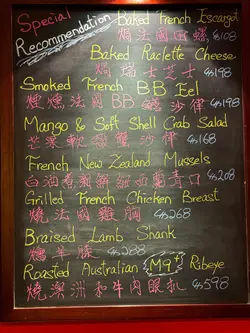 Special
Recommendation
Baked French Escargot
焗法國田螺 $108
Baked Raclette Cheese
焗瑞士芝士 $198
Smoked French BB Eel
煙燻法國BB鰻沙律 $198
Mango & Soft Shell Crab Salad
芒果軟殼蟹沙律 $168
French New Zealand Mussels
白油煮新鮮紐西蘭青口 $208
Grilled French Chicken Breast
燒法國雞胸 $268
Braised Lamb Shank
燴羊膝 $288
Roasted Australian M9+ Ribeye
燒澳洲和牛肉眼扒 $598